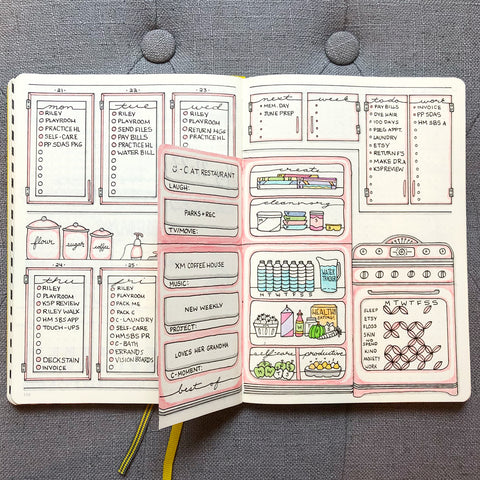 ·21·
mon
RILEY
PLAYROOM
PRACTICE HL
SELF-CARE
PP SDAS PKG
·22·
tue
RILEY
PLAYROOM
SEND FILES
PAY BILLS
PRACTICE HL
WATER BILL
·23·
wed
RILEY
PLAYROOM
RETURN H&S
PRACTICE HL
next week
MEM. DAY
JUNE PREP
todo
PAY BILLS
DYE HAIR
100 DAYS
PREG APPT.
LAUNDRY
ETSY
RETURN FS
MAKE DR. A
KSP REVIEW
work
INVOICE
PP SDAS
HM SBS A
flour
sugar
coffee
·24·
thu
RILEY
PLAYROOM
KSP REVIEW
RILEY WALK
HM SBS APP
TOUCH-UPS
DECK STAIN
INVOICE
·25·
fri
RILEY
PLAYROOM
PACK HL
PACK C
C-LAUNDRY
SELF-CARE
HM SBS PR
C-BATH
ERRANDS
VISION BOARDS
C AT RESTAURANT
LAUGH:
PARKS + REC
TV/MOVIE:
XM COFFEE HOUSE
MUSIC:
NEW WEEKLY
PROJECT:
LOVES HER GRANDMA
C-MOMENT:
best of
create
clean
ivory
WATER TRACKER
M T W T F S S
HEALTHY EATING!
selfcare
productive
M T W T F S S
SLEEP
ETSY
FLOSS
SKIN
NO SPEND
KIND
ANXIETY
WORK